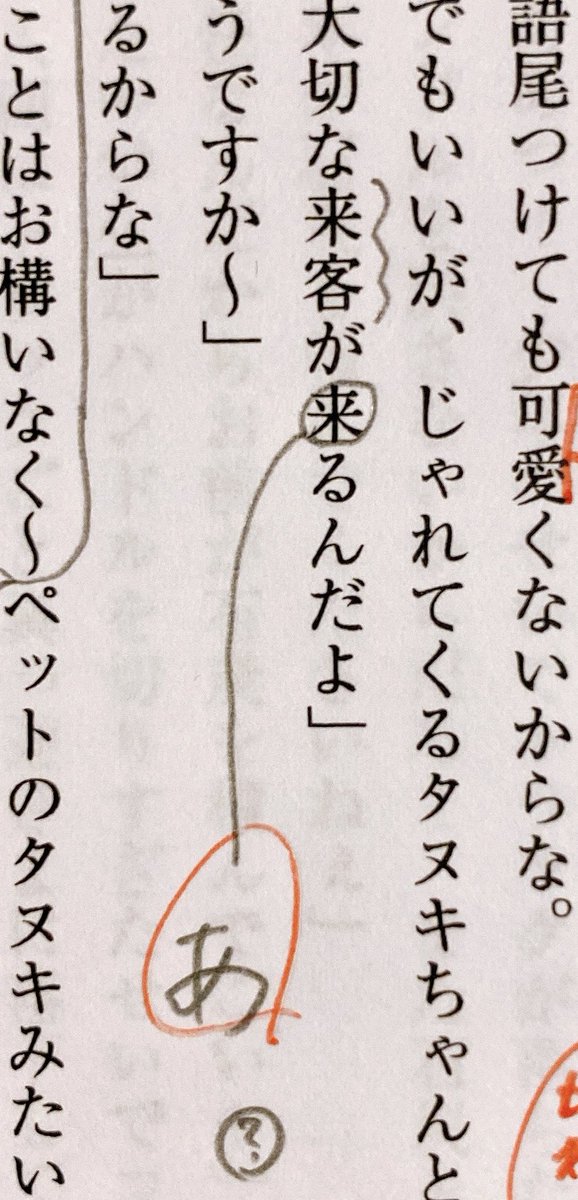 語尾つけても可愛くないからな。
でもいいが、じゃれてくるタヌキちゃんと
大切な来客が来るんだよ」
うですか〜」
るからな」
ことはお構いなく〜ペットのタヌキみたい
あ
?